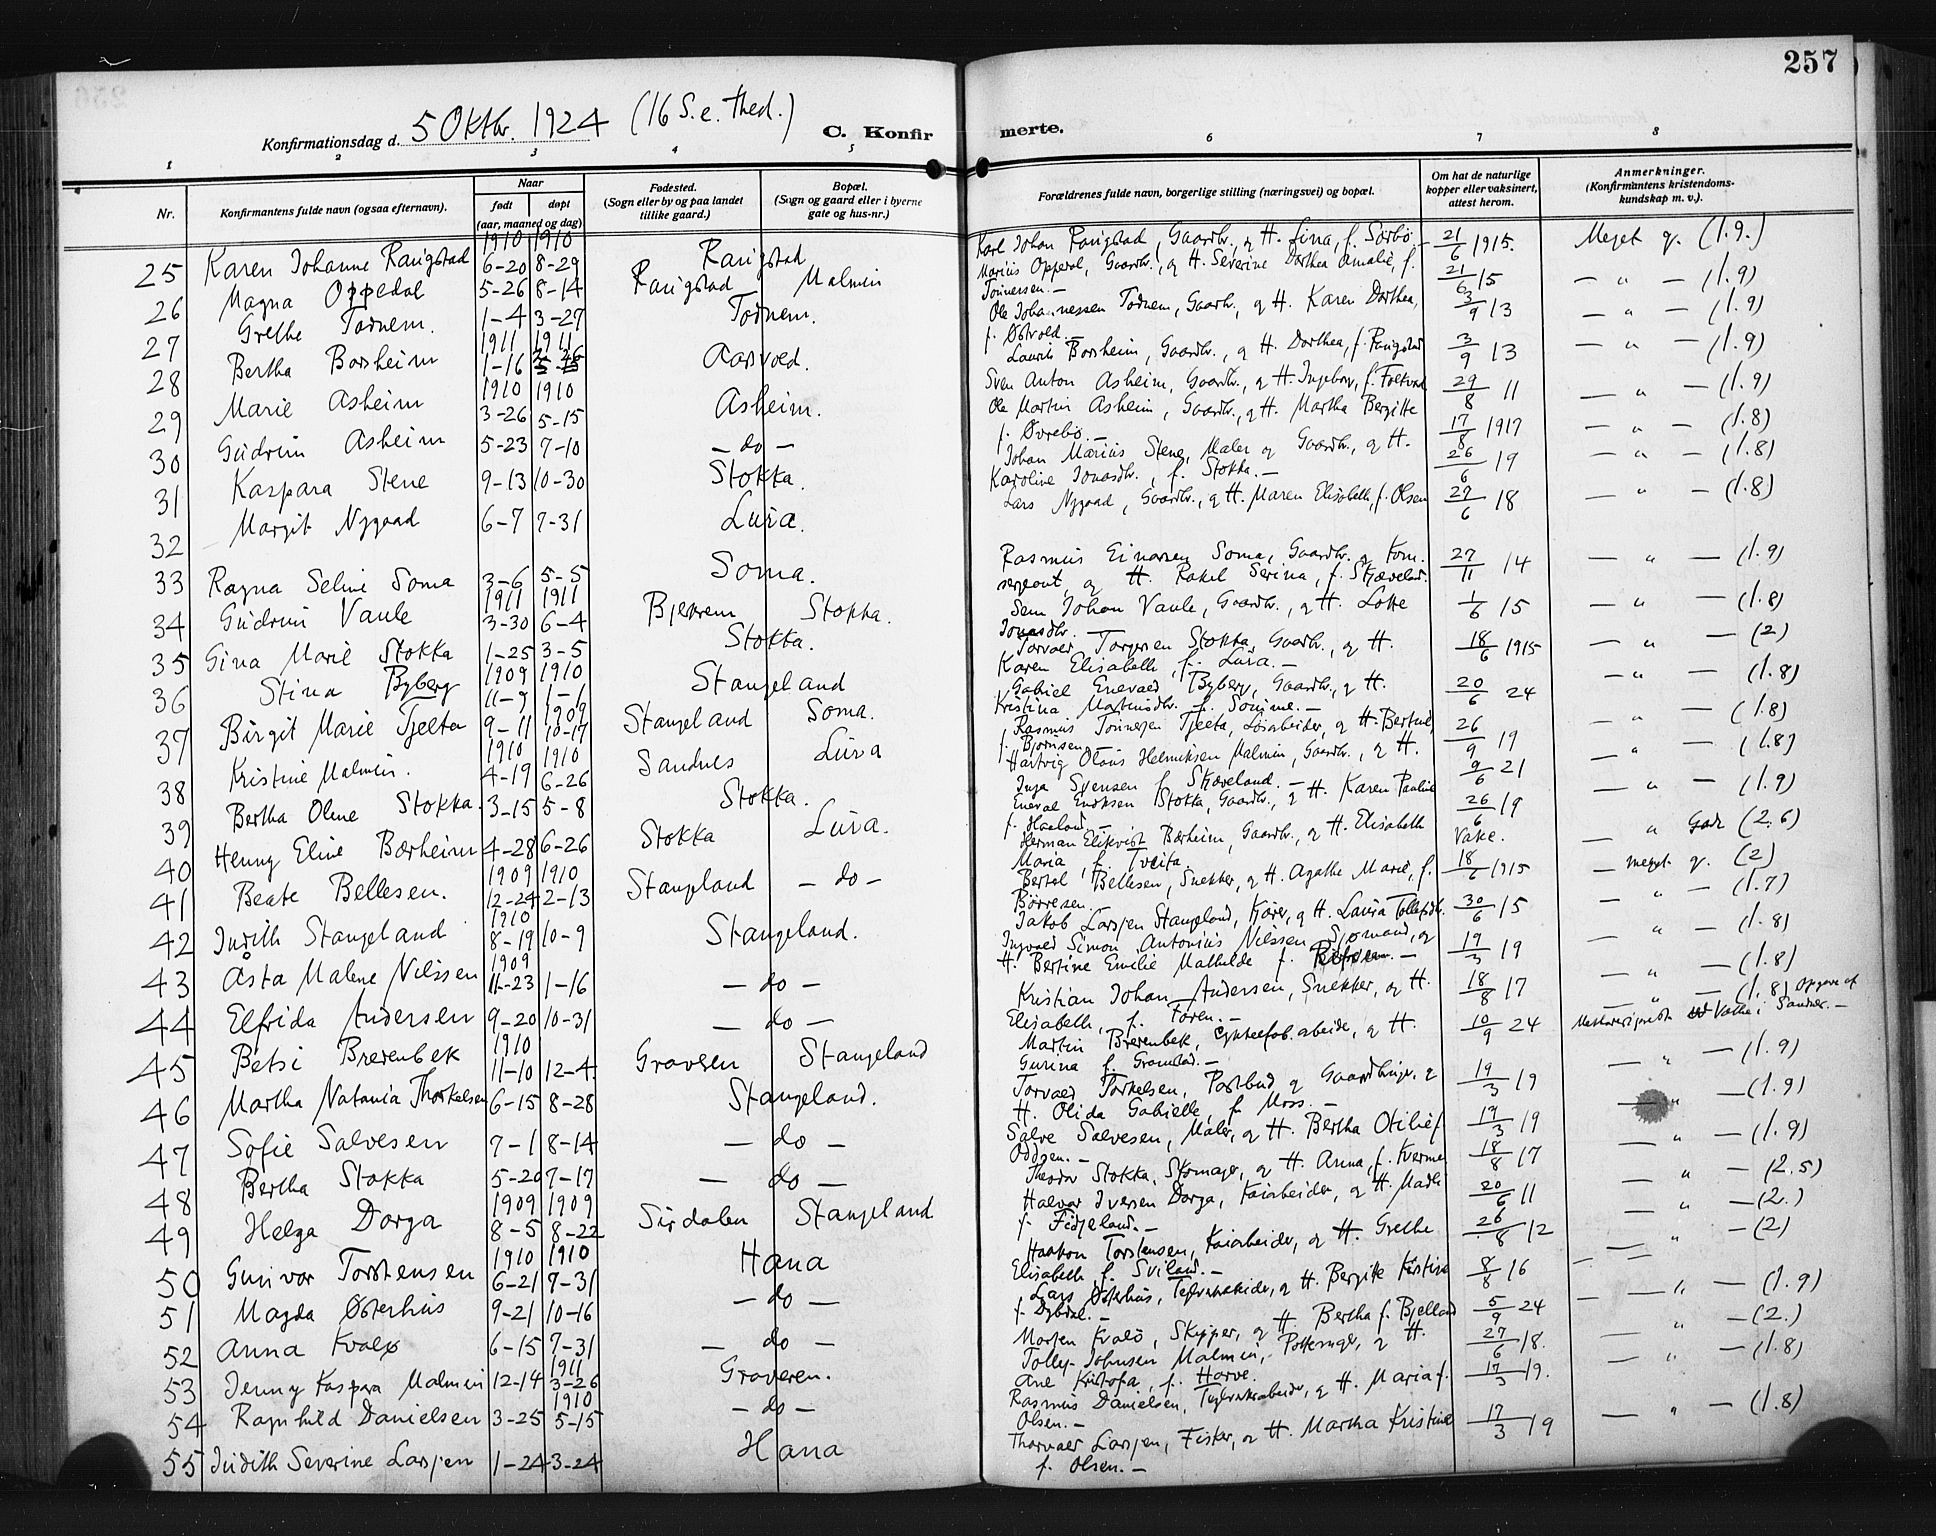 257
Konfirmationsdag d. 5 Oktbr. 1924 (16 S. e. Tked.)
C. Konfirmerte.
1 2 3 4 5 6 7 8
Nr.
Konfirmantens fulde navn (ogsaa efternavn).
Naar
født døpt
(aar, maaned og dag)
Fødested.
(Sogn eller by og paa landet
tillike gaard.)
Bopæl.
(Sogn og gaard eller i byerne
gate og hus-nr.)
Forældrenes fulde navn, borgerlige stilling (næringsvei) og bopæl.
Om hat de naturlige
kopper eller vaksinert,
attest herom.
Anmerkninger.
(Konfirmantens kristendoms-
kundskap m. v.).
1910 1910
25 Karen Johanne Rangstad 6-20 8-29 Rangstad
Karl Johan Rangstad, Gaardbr., og H. Lina, f. Sørbø.- 21/6 1915. Meget g. (1.9.)
26 Magna Oppedal 5-26 8-14 Rangstad Malmin
Marius Oppedal, Gaardbr., og H. Severine Dorthea Amalie, f.
Tønnesen.- 21/6 15 — " — (1.9)
27 Grethe Todnem. 1-4 3-27 Todnem.
Ole Johannessen Todnem, Gaardbr., og H. Karen Dorthea,
f. Østvold.- 3/9 13 — " — (1.9)
1911 1911
28 Bertha Borsheim 1-16 Aasvoed.
Laurits Borsheim, Gaardbr., og H. Dorthea, f. Rangstad 3/9 13 — " — (1.9)
1910 1910
29 Marie Asheim 3-26 5-15 Asheim.
Sven Anton Asheim, Gaardbr., og H. Ingeborg, f. Folkvord 29/8 11 — " — (1.9)
30 Gudrun Asheim 5-23 7-10 — do —
Ole Martin Asheim, Gaardbr., og H. Martha Bergitte
f. Øvrebø.- 17/8 1917 — " — (1.8)
31 Kaspara Stene 9-13 10-30 Stokka.
Johan Marius Stene, Maler og Gaardbr., og H.
Karoline Jonasdtr., f. Stokka.- 26/6 19 — " — (1.8)
32 Margit Nygaad 6-7 7-31 Lura.
Lars Nygaad, Gaardbr., og H. Maren Elisabeth, f. Olsen 27/6 18 — " — (1.8)
33 Ragna Seline Soma 3-6 5-5 Soma.
Rasmus Einarsen Soma, Gaardbr. og Kom.
sergeant, og H. Rakel Serina, f. Skjæveland. 27/11 14 — " — (1.9)
1911 1911
34 Gudrun Vaule 3-30 6-4 Bjerkrem Stokka.
Sem Johan Vaule, Gaardbr., og H. Lotte
Jonasdtr. 1/6 15 — " — (1.8)
35 Gina Marie Stokka 1-25 3-5 Stokka.
Torvaed Torgersen Stokka, Gaardbr., og H.
Karen Elisabeth f. Lura.- 18/6 1915 — " — (2)
1909 1910
36 Stina Byberg 11-9 1-1 Stangeland
Gabriel Enevaed Byberg, Gaardbr., og H.
Kristina Martinsdtr. f. Somme.- 20/6 24 — " — (1.8)
1909
37 Birgit Marie Tjelta 9-11 10-17 Stangeland Soma.
Rasmus Tønnesen Tjelta, Løsarbeider, og H. Bertine
f. Bjørnsen. 26/9 19 — " — (1.8)
1910 1910
38 Kristine Malmin. 4-19 6-26 Sandnes Lura
Hartvig Olaus Helmiksen Malmin, Gaardbr., og H.
Inga Svensen f. Skjæveland.- 9/6 21 — " — (1.8)
39 Bertha Oline Stokka. 3-15 5-8 Stokka.
Eneval Eriksen Stokka, Gaardbr., og H. Karen Pauline
f. Haaland.- 26/6 19 — " — (1.9)
40 Henny Eline Bærheim 4-28 6-26 Stokka Lura.
Herman Elikvist Bærheim, Gaardbr., og H. Elisabeth
Maria f. Tveita. Vake. — " Godt (2.6)
1909 1910
41 Beate Bellesen. 12-24 2-13 Stangeland — do —
Bertel Bellesen, Snekker, og H. Agathe Marie, f.
Børresen. 18/6 1915 — meget g. (2)
1910
42 Judith Stangeland 8-19 10-9 Stangeland.
Jakob Larsen Stangeland, Kjører, og H. Laura Tollefsdtr. 30/6 15 — " — (1.7)
1909
43 Åsta Malene Nilssen 11-23 1-16 — do —
Ingvaed Simon Antonius Nilssen, Sjømand, og
H. Bertine Emilie Mathilde f. 19/3 19 — " — (1.8)
44 Elfrida Andersen 9-20 10-31 — do —
Kristian Johan Andersen, Snekker, og H.
Elisabeth, f. Foren.- 18/8 17 — " — (1.8)
1910
45 Betsi Brerenbek 11-10 12-4. Gravsen Stangeland
Martin Brerenbek, Cykkelfab.arbeider, og H.
Gurina f. Gramstad.- 10/9 24 — " — (1.8) Opgave af
46 Martha Natania Thorkelsen 6-15 8-28 Stangeland.
Torvaed Torkelsen, Postbud og Gaardbruger, og
H. Olida Gabielle, f. Moss.- 19/3 19 — " — (1.9)
47 Sofie Salvesen 7-1 8-14 — do —
Salve Salvesen, Maler, og H. Bertha Otilie f.
Oddsen.- 19/3 19 — " — (1.9)
48 Bertha Stokka 5-20 7-17 — do —
Theodor Stokka, Skomager, og H. Anna, f. Kverme 18/8 17 — " — (1.9)
1909 1909
49 Helga Dorga 8-5 8-22 Sirdalen Stangeland
Halvor Iversen Dorga, Kaiarbeider, og H. Madli
f. Fidjeland.- 20/6 11 — " — (2.5)
1910 1910
50 Gunvor Torstensen 6-21 7-31 Hana
Haakon Torstensen, Kaiarbeider, og H. Grethe
Elisabeth f. Sviland.- 26/8 12 — " — (2.)
51 Magda Østerhus 9-21 10-16 — do —
Lars Østerhus, Teglverkarbeider, og H. Bergitte Kristine
f. Dybdal.- 8/8 16 — " — (2)
52 Anna Kvalø 6-15 7-31 — do —
Morten Kvalø, Skipper, og H. Bertha f. Bjelland 5/9 24 — " — (1.9)
1911
53 Jenny Kaspara Malmin 12-14 3-26 Graveren.
Tolly Johnsen Malmin, Pottemager, og H.
Ane Kristofa, f. Horve. 27/6 18. — " — (2.)
1910
54 Ragnhild Danielsen 3-25 5-15 — do —
Rasmus Danielsen, Teglverkarbeider, og H. Maria f.
Olsen.- 17/3 19. — " — (1.8)
55 Judith Severine Larsen 1-24 3-24 Hana
Thorvaed Larsen, Fisker, og H. Martha Kristine
f. Olsen.- 17/3 19 — " — (1.8)